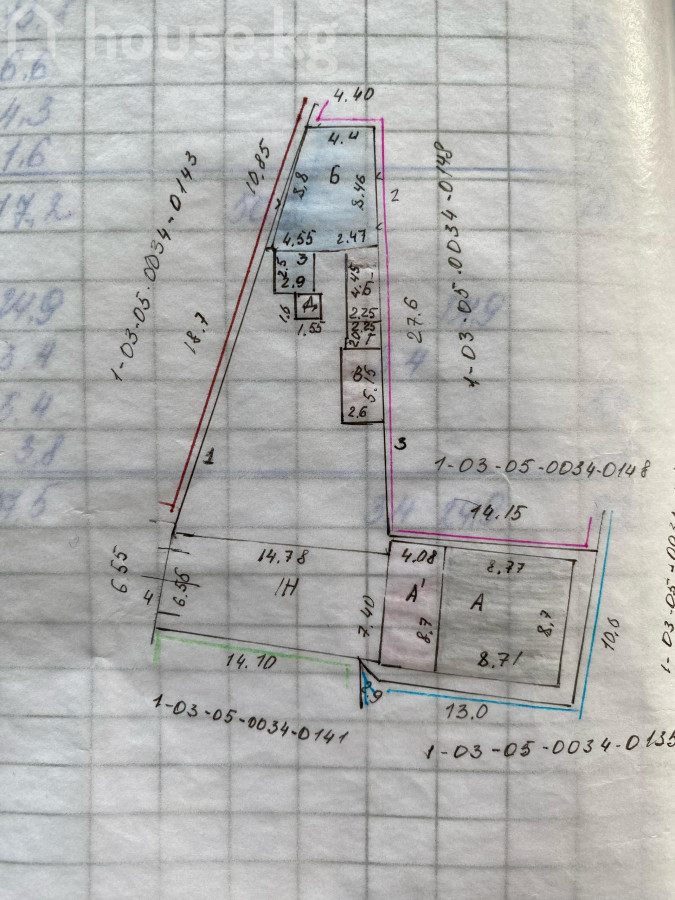 house.kg
6.6
4.3
1.6
17.2
24.9
5.4
3.8
4.40
4.4
10.85
5.8
Б
5.46
2
4.55
2.47
1-03-05-0034-0143
1-03-05-0034-0148
3
2.5
2.9
Д
1.6
1.55
4.45
Б
2.25
2.25
18.7
27.6
149
4
В
5.15
2.6
1
3
1-03-05-0034-0148
14.15
6.55
4
6.56
14.78
1Н
4.08
8.77
А'
А
7.40
8,7
8,7
8.71
10,6
14.10
13.0
1-03-05-0034-0141
1-03-05-0034-0135